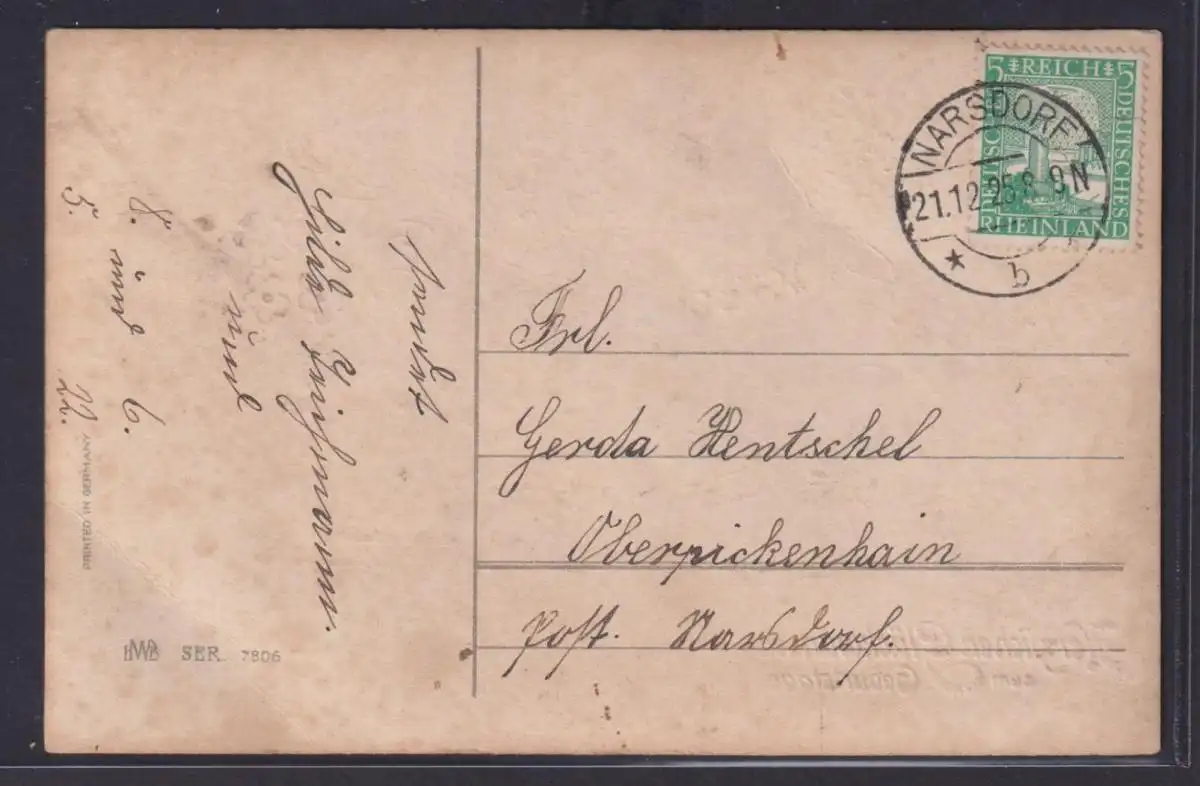 5 REICH 5
DEUTSCHES
RHEINLAND
NARSDORF
21.12.25.8-9N
* b *
Frl.
Gerda Hentschel
Oberpickenhain
Post. Narsdorf.
sendet
und
8. und 6.
5. 22.
PRINTED IN GERMANY
SER. 7806